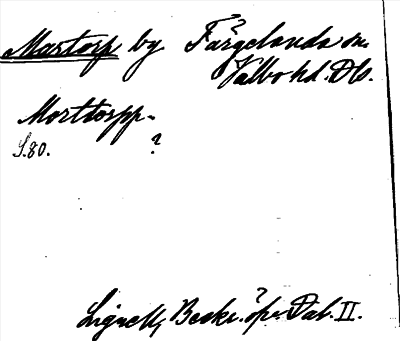 Martorp by. Färgelanda sn.
Valbo hd. Dls.
Morttorpp.
S. 80. ?
Lignell, Beskr. öfv. Dal. II.